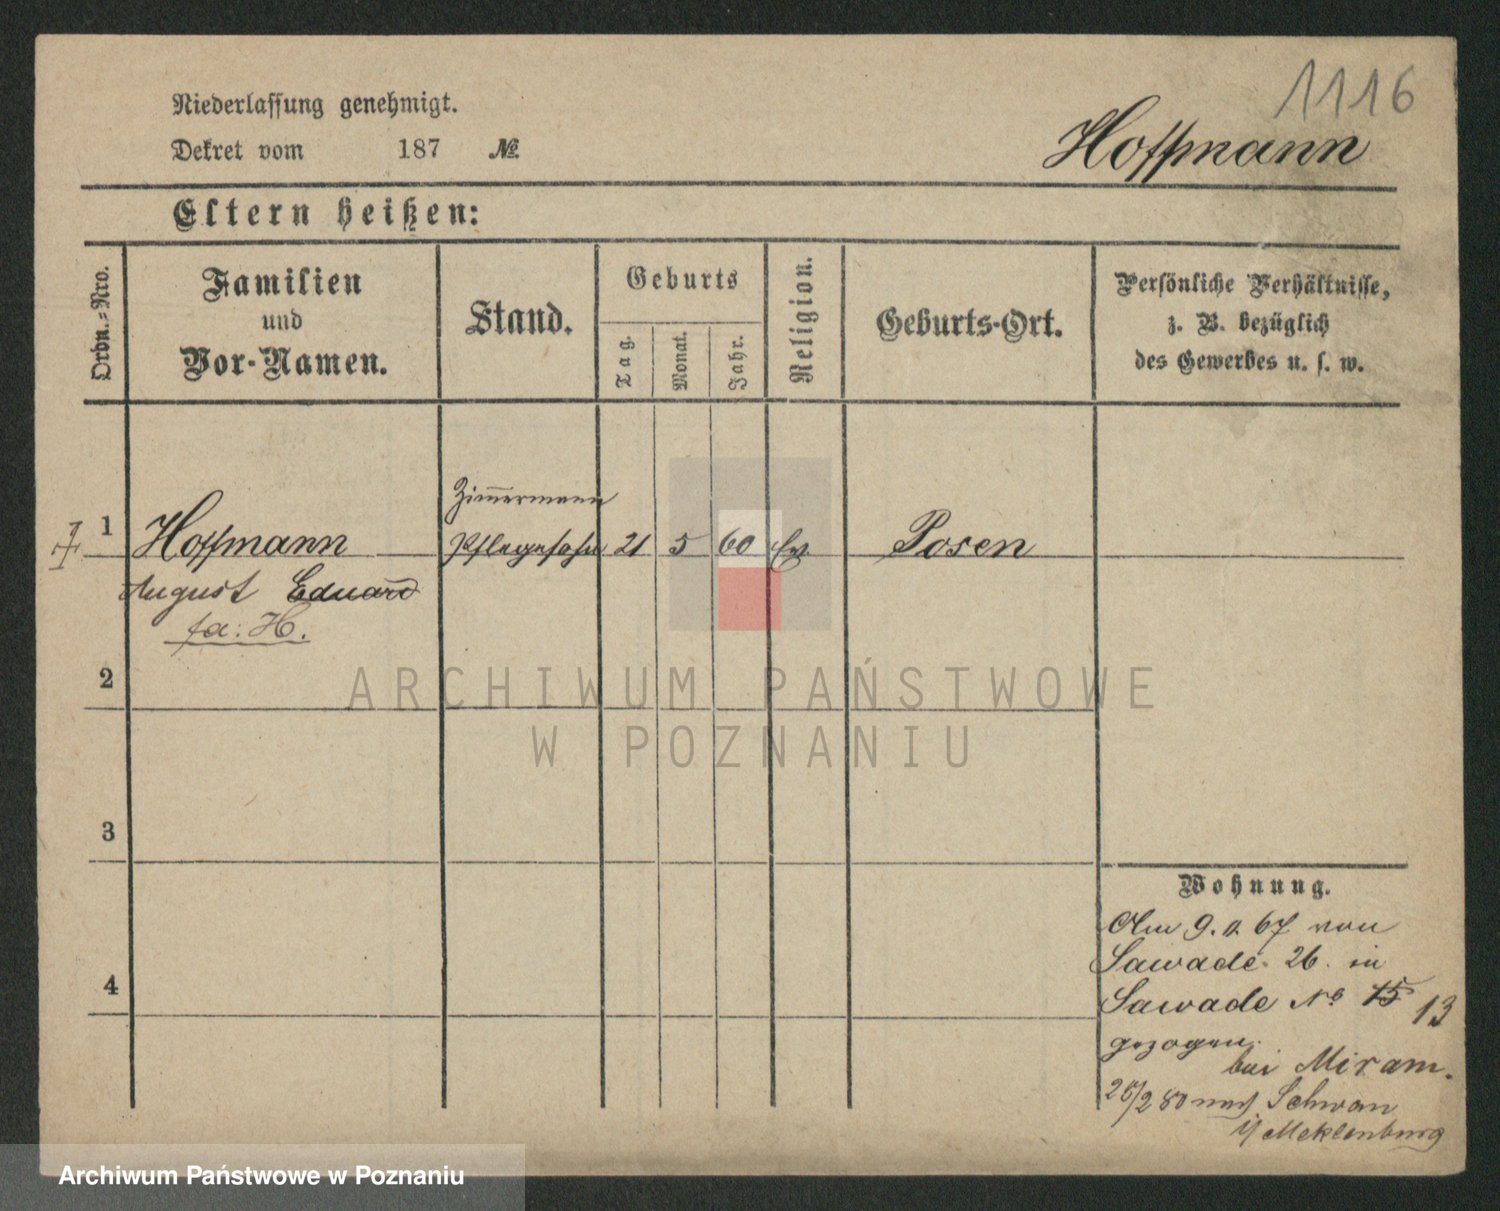 1116
Niederlassung genehmigt.
Dekret vom 187 №
Hoffmann
Eltern heißen:
Ordn.-Nro.
Familien
und
Vor-Namen.
Stand.
Geburts
Tag.
Monat.
Jahr.
Religion.
Geburts-Ort.
Persönliche Verhältnisse,
z. B. bezüglich
des Gewerbes u. s. w.
Zimmermann
1 Hoffmann Pflegesohn 21 5 60 Ev Posen
August Eduard
fa: H.
2
ARCHIWUM PAŃSTWOWE
W POZNANIU
3
4
Wohnung.
Am 9. 11. 67 von
Sawade 26. in
Sawade No 15 13
gezogen.
bei Miram.
26/2 80 nach Schwan
i/Meklenburg
Archiwum Państwowe w Poznaniu